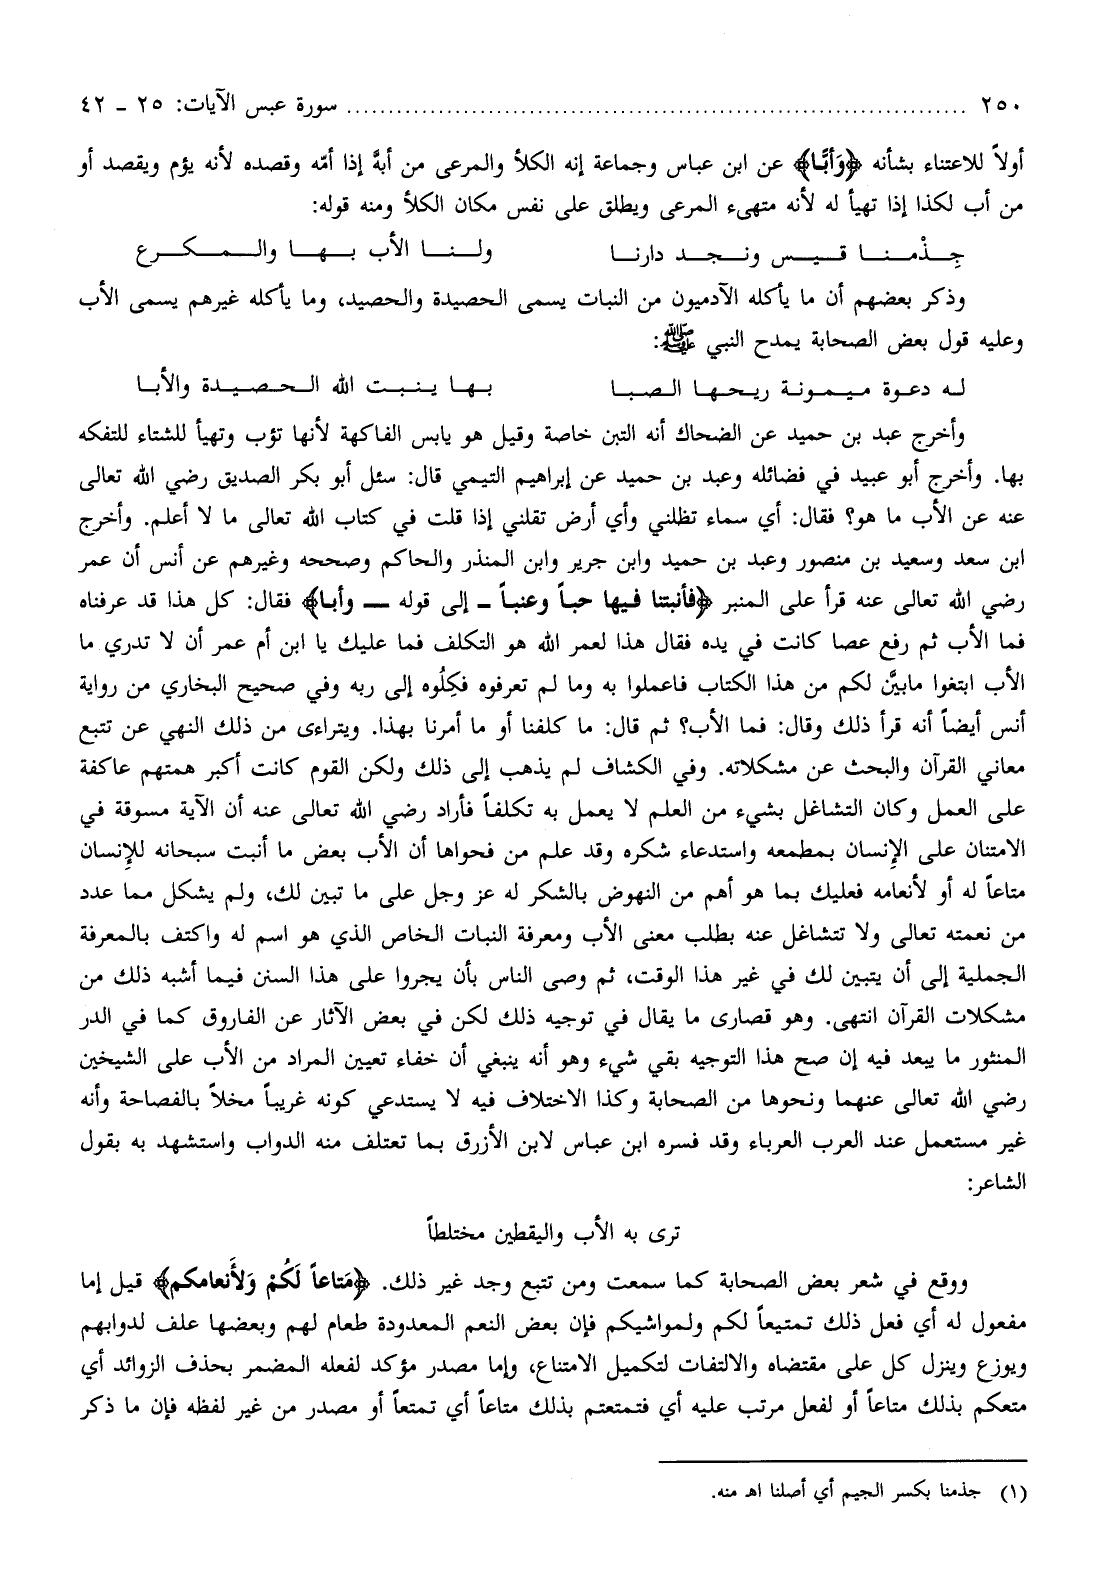 ٢٥٠ .......................................................................... سورة عبس الآيات: ٢٥ ـ ٤٢
أولاً للاعتناء بشأنه ﴿وَأبًّا﴾ عن ابن عباس وجماعة إنه الكلأ والمرعى من أبهُّ إذا أمّه وقصده لأنه يؤم ويقصد أو
من أب لكذا إذا تهيأ له لأنه متهىء المرعى ويطلق على نفس مكان الكلأ ومنه قوله:
جِـذْمـنـا قـيـس ونـجـد دارنـا ولـنـا الأب بـهـا والـمـكـرع
وذكر بعضهم أن ما يأكله الآدميون من النبات يسمى الحصيدة والحصيد، وما يأكله غيرهم يسمى الأب
وعليه قول بعض الصحابة يمدح النبي ﷺ:
لـه دعـوة مـيـمـونـة ريـحـهـا الـصـبـا بـهـا يـنـبـت الله الـحـصـيـدة والأبـا
وأخرج عبد بن حميد عن الضحاك أنه التبن خاصة وقيل هو يابس الفاكهة لأنها تؤب وتهيأ للشتاء للتفكه
بها. وأخرج أبو عبيد في فضائله وعبد بن حميد عن إبراهيم التيمي قال: سئل أبو بكر الصديق رضي الله تعالى
عنه عن الأب ما هو؟ فقال: أي سماء تظلني وأي أرض تقلني إذا قلت في كتاب الله تعالى ما لا أعلم. وأخرج
ابن سعد وسعيد بن منصور وعبد بن حميد وابن جرير وابن المنذر والحاكم وصححه وغيرهم عن أنس أن عمر
رضي الله تعالى عنه قرأ على المنبر ﴿فأنبتنا فيها حباً وعنباً ـ إلى قوله ـ وأبا﴾ فقال: كل هذا قد عرفناه
فما الأب ثم رفع عصا كانت في يده فقال هذا لعمر الله هو التكلف فما عليك يا ابن أم عمر أن لا تدري ما
الأب ابتغوا مابيَّن لكم من هذا الكتاب فاعملوا به وما لم تعرفوه فكِلُوه إلى ربه وفي صحيح البخاري من رواية
أنس أيضاً أنه قرأ ذلك وقال: فما الأب؟ ثم قال: ما كلفنا أو ما أمرنا بهذا. ويتراءى من ذلك النهي عن تتبع
معاني القرآن والبحث عن مشكلاته. وفي الكشاف لم يذهب إلى ذلك ولكن القوم كانت أكبر همتهم عاكفة
على العمل وكان التشاغل بشيء من العلم لا يعمل به تكلفاً فأراد رضي الله تعالى عنه أن الآية مسوقة في
الامتنان على الإنسان بمطمعه واستدعاء شكره وقد علم من فحواها أن الأب بعض ما أنبت سبحانه للإنسان
متاعاً له أو لأنعامه فعليك بما هو أهم من النهوض بالشكر له عز وجل على ما تبين لك، ولم يشكل مما عدد
من نعمته تعالى ولا تتشاغل عنه بطلب معنى الأب ومعرفة النبات الخاص الذي هو اسم له واكتف بالمعرفة
الجملية إلى أن يتبين لك في غير هذا الوقت، ثم وصى الناس بأن يجروا على هذا السنن فيما أشبه ذلك من
مشكلات القرآن انتهى. وهو قصارى ما يقال في توجيه ذلك لكن في بعض الآثار عن الفاروق كما في الدر
المنثور ما يبعد فيه إن صح هذا التوجيه بقي شيء وهو أنه ينبغي أن خفاء تعيين المراد من الأب على الشيخين
رضي الله تعالى عنهما ونحوها من الصحابة وكذا الاختلاف فيه لا يستدعي كونه غريباً مخلاً بالفصاحة وأنه
غير مستعمل عند العرب العرباء وقد فسره ابن عباس لابن الأزرق بما تعتلف منه الدواب واستشهد به بقول
الشاعر:
ترى به الأب واليقطين مختلطاً
ووقع في شعر بعض الصحابة كما سمعت ومن تتبع وجد غير ذلك. ﴿مَتاعاً لَكُمْ وَلأَنعامكم﴾ قيل إما
مفعول له أي فعل ذلك تمتيعاً لكم ولمواشيكم فإن بعض النعم المعدودة طعام لهم وبعضها علف لدوابهم
ويوزع وينزل كل على مقتضاه والالتفات لتكميل الامتناع، وإما مصدر مؤكد لفعله المضمر بحذف الزوائد أي
متعكم بذلك متاعاً أو لفعل مرتب عليه أي فتمتعتم بذلك متاعاً أي تمتعاً أو مصدر من غير لفظه فإن ما ذكر
(١) جذمنا بكسر الجيم أي أصلنا اهـ منه.